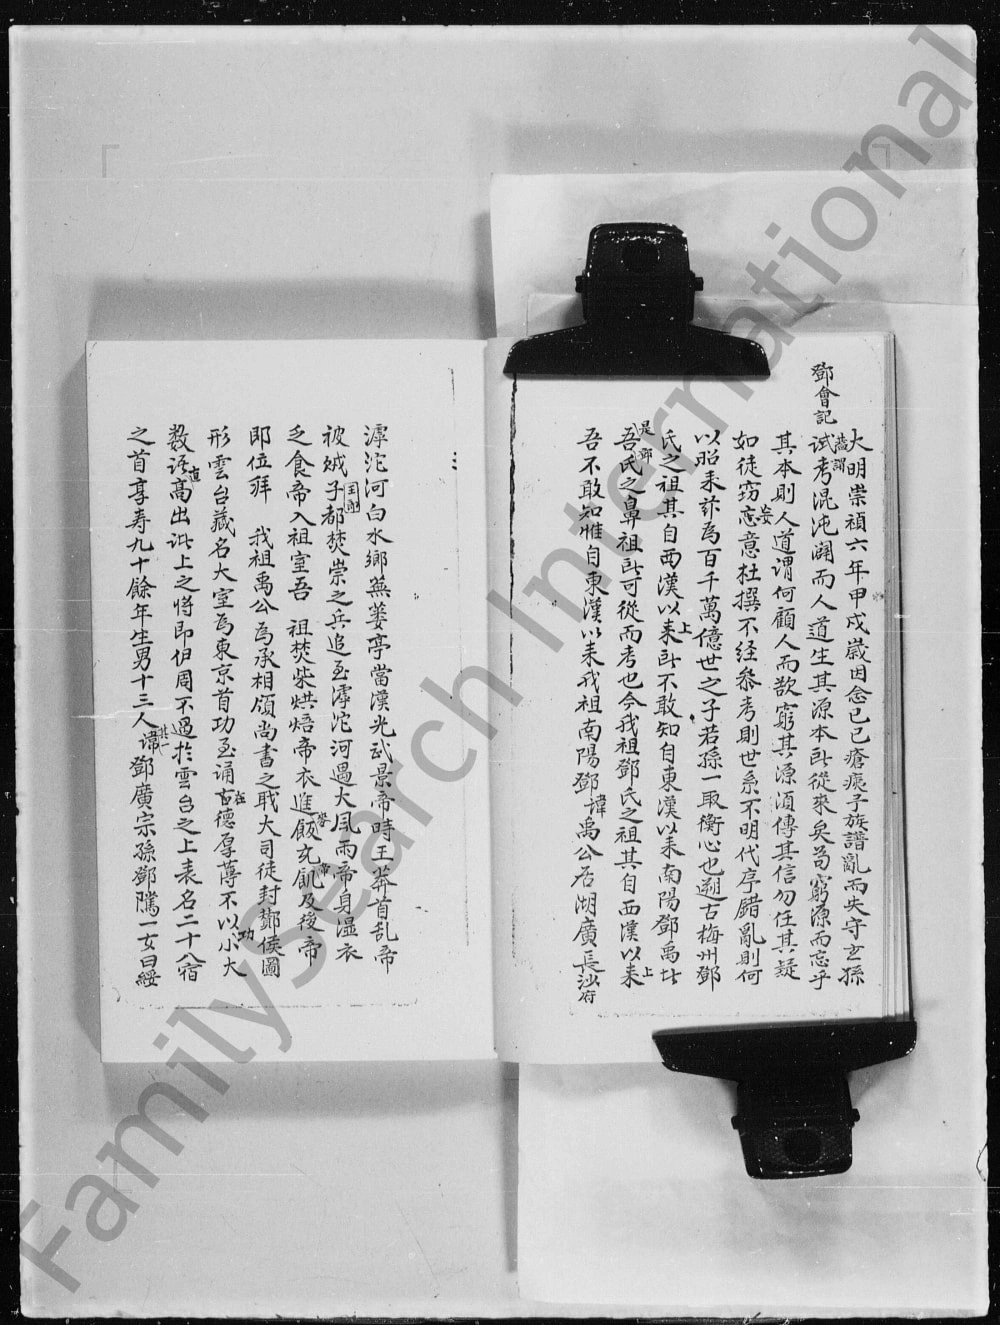 鄧會記
大明崇禎六年甲戌歲因念己巳瘡痍子族譜亂而失守玄孫
蕭謂
試考混沌闢而人道生其源本所從來矣苟窮源而忘乎
其本則人道謂何顧人而欲窮其源須傳其信勿任其疑
如徒窃妄忘意杜撰不经参考則世系不明代序錯亂則何
以昭来茲為百千萬億世之子若孫一取衡心也遡古梅州鄧
氏之祖其自西漢以上耒所不敢知自東漢以耒南陽鄧禹此
是鄧
吾氏之鼻祖所可從而考也今我祖鄧氏之祖其自西漢以耒上
吾不敢知惟自東漢以耒我祖南陽鄧諱禹公居湖廣長沙府
滹沱河白水鄉無蔞亭當漢光武景帝時王莽首乱帝
被賊子王郎都焚崇之兵追至滹沱河過大風雨帝身湿衣
乏食帝入祖室吾 祖焚柴烘焙帝衣進飯麥充飢帝及後帝
即位拜 我祖禹公為承相領尚書之職大司徒封鄼侯圖
形雲台藏名大室為東京首功至誦古在德厚薄不以小大功
数語直高出此上之將即伯周不過於雲台之上表名二十八宿
之首享寿九十餘年生男十三人其一諱鄧廣宗孫鄧騭一女曰綏
FamilySearch International